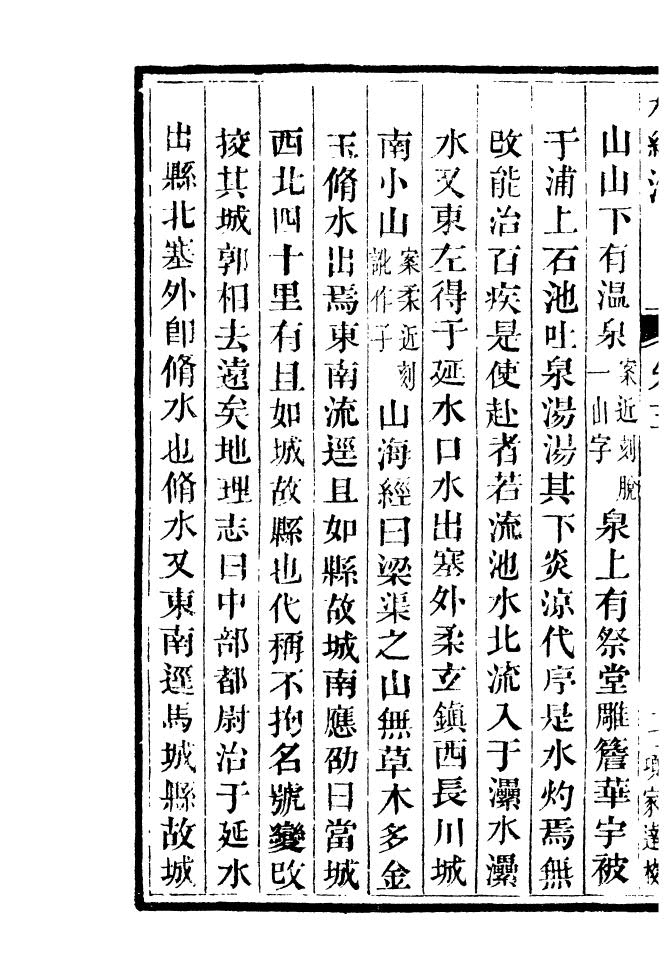 項家達校
山山下有溫泉案近刻脫一山字泉上有祭堂雕簷華宇被
于浦上石池吐泉湯湯其下炎涼代序是水灼焉無
改能治百疾是使赴者若流池水北流入于㶟水㶟
水又東左得于延水口水出塞外柔玄鎮西長川城
南小山案柔近刻訛作子山海經曰梁渠之山無草木多金
玉脩水出焉東南流逕且如縣故城南應劭曰當城
西北四十里有且如城故縣也代稱不拘名號變改
挍其城郭相去遠矣地理志曰中部都尉治于延水
出縣北塞外卽脩水也脩水又東南逕馬城縣故城